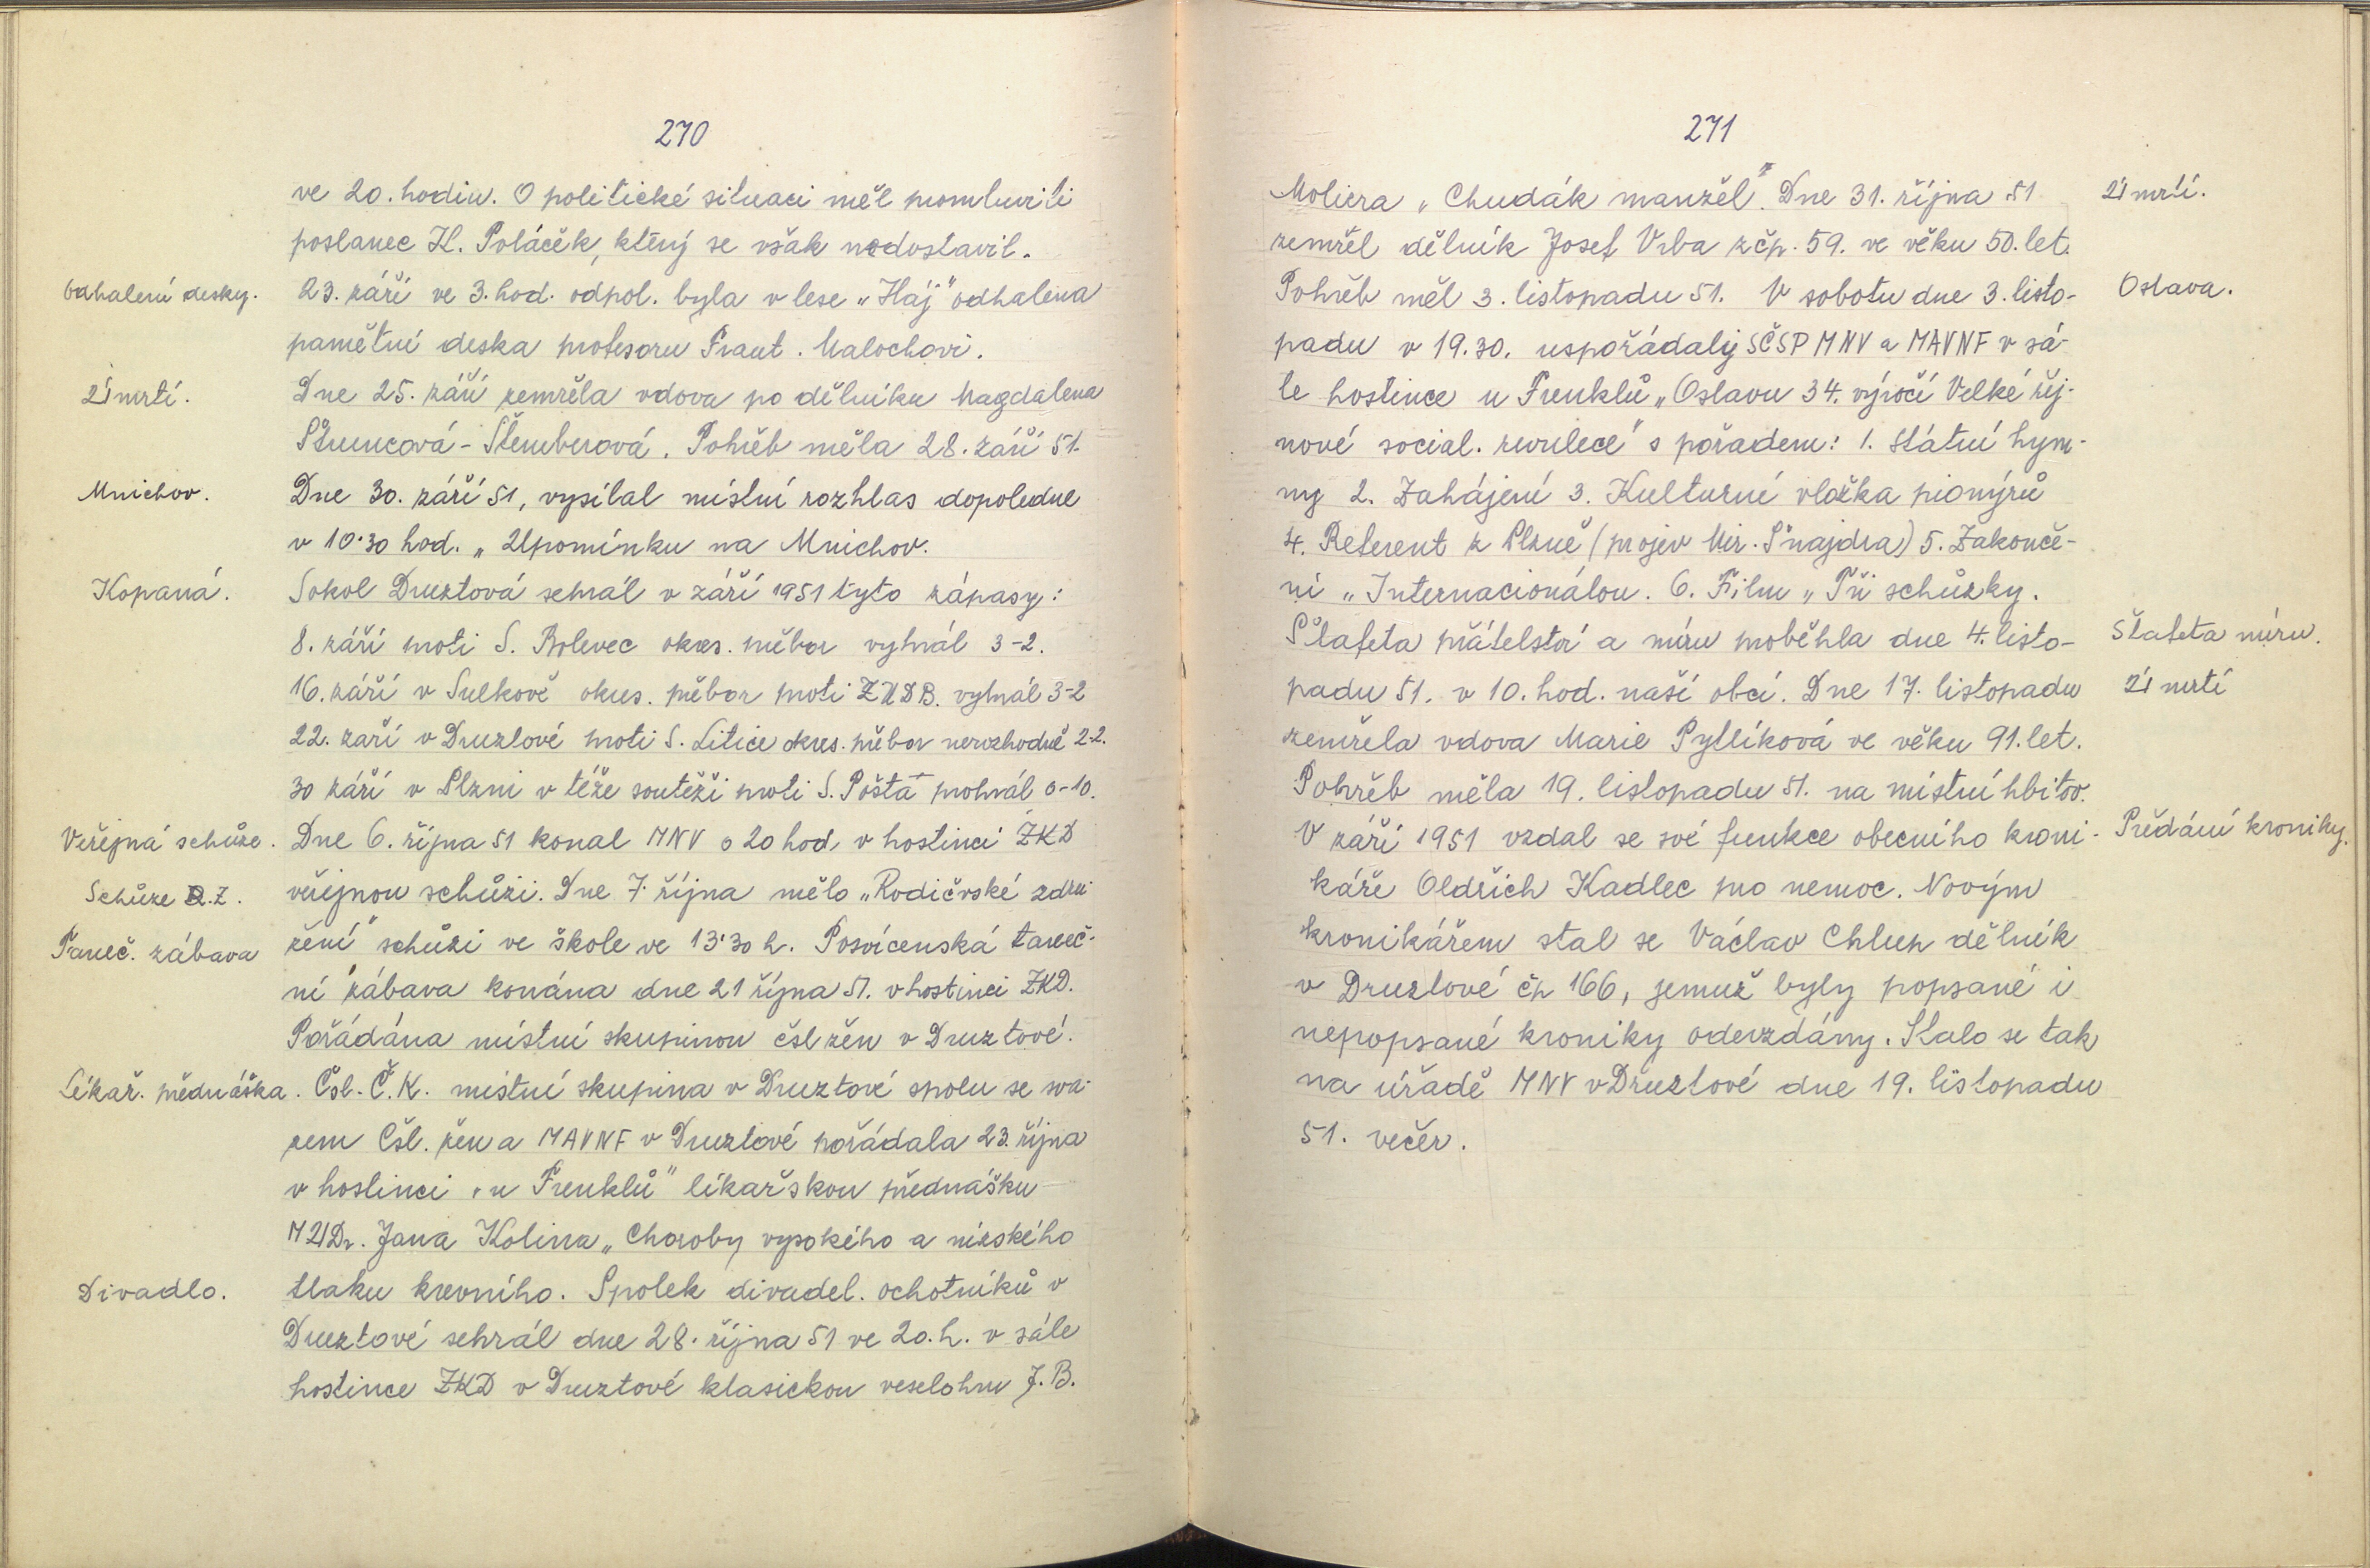 270
ve 20. hodin. O politické situaci měl promluviti
poslanec H. Poláček, který se však nedostavil.
Odhalení desky.
23. září ve 3. hod. odpol. byla v lese „Háj" odhalena
pamětní deska profesoru Frant. Malochovi.
Úmrtí.
Dne 25. září zemřela vdova po dělníku Magdalena
Štruncová - Štemberová. Pohřeb měla 28. září 51.
Mnichov.
Dne 30. září 51, vysílal místní rozhlas dopoledne
v 10·30 hod. „Upomínku na Mnichov.
Kopaná.
Sokol Druztová sehrál v září 1951 tyto zápasy:
8. září proti S. Bolevec okres. přebor vyhrál 3-2.
16. září v Sulkově okres. přebor proti ZUDB. vyhrál 3-2
22. září v Druztové proti S. Litice okres. přebor nerozhodně 2-2.
30 září v Plzni v téže soutěži proti S. Pošta prohrál 0-10.
Veřejná schůze.
Dne 6. října 51 konal MNV o 20 hod, v hostinci ŽKD
Schůze R.Z.
veřejnou schůzi. Dne 7. října mělo „Rodičovské zdru-
Taneč. zábava
žení" schůzi ve škole ve 13·30 h. Posvícenská taneč-
ní zábava konána dne 21 října 51. v hostinci ŽKD.
Pořádána místní skupinou čsl žen v Druztové.
Lékař. přednáška.
Čsl. Č.K. místní skupina v Druztové spolu se sva-
zem Čsl. žen a MAVNF v Druztové pořádala 23. října
v hostinci „u Frenklů" lékařskou přednášku
MUDr. Jana Kolina „Choroby vysokého a nízkého
Divadlo.
tlaku krevního. Spolek divadel. ochotníků v
Druztové sehrál dne 28. října 51 ve 20. h. v sále
hostince ŽKD v Druztové klasickou veselohru J. B.
271
Moliera „Chudák manžel". Dne 31. října 51
Úmrtí.
zemřel dělník Josef Vrba z čp. 59. ve věku 50. let.
Pohřeb měl 3. listopadu 51. V sobotu dne 3. listo-
Oslava.
padu v 19.30. uspořádaly SČSP MNV a MAVNF v sá-
le hostince u Frenklů „Oslavu 34. výročí Velké říj-
nové social. revulece" s pořadem: 1. Státní hym-
ny 2. Zahájení 3. Kulturní vložka pionýrů
4. Referent z Plzně (projev Mir. Šnajdra) 5. Zakonče-
ní „Internacionálou. 6. Film „Tři schůzky.
Štafeta přátelství a míru proběhla dne 4. listo-
Štafeta míru.
padu 51. v 10. hod. naší obcí. Dne 17. listopadu
Úmrtí
zemřela vdova Marie Pytlíková ve věku 91. let.
Pohřeb měla 19. listopadu 51. na místní hbitov.
V září 1951 vzdal se své funkce obecního kroni-
Předání kroniky.
káře Oldřich Kadlec pro nemoc. Novým
kronikářem stal se Václav Chlup dělník
v Druztové čp 166, jemuž byly popsané i
nepopsané kroniky odevzdány. Stalo se tak
na úřadě MNV v Druztové dne 19. listopadu
51. večer.